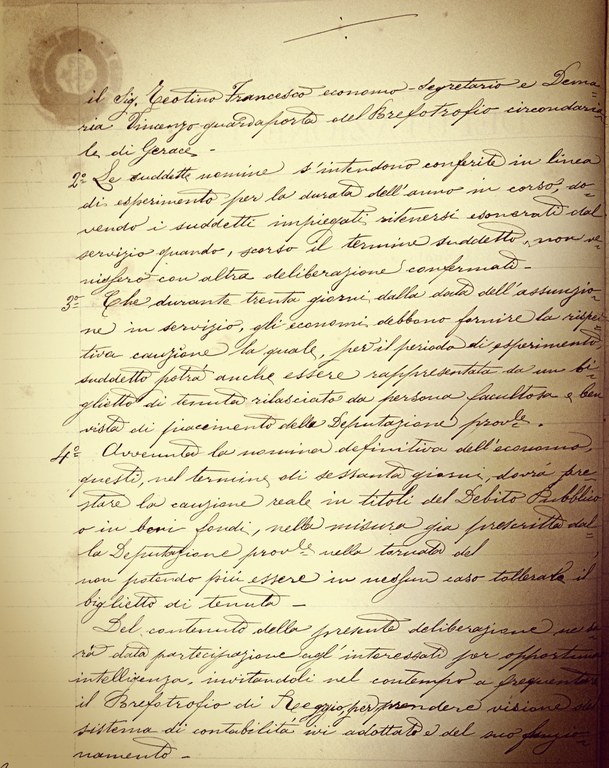 il Sig. Teotino Francesco economo-segretario e Dema=
ria Vincenzo guardaporta del Brefotrofio circondaria=
le di Gerace -
2º Le suddette nomine s'intendono conferite in linea
di esperimento per la durata dell'anno in corso, do=
vendo i suddetti impiegati ritenersi esonerati dal
servizio quando, scorso il termine suddetto, non ve=
nissero con altra deliberazione confermati -
3º Che durante trenta giorni dalla data dell'assunzio=
ne in servizio, gli economi debbono fornire la rispet=
tiva cauzione la quale, per il periodo di esperimento
suddetto potrà anche essere rappresentata da un bi=
glietto di tenuta rilasciato da persona facultosa e ben
vista di piacimento della Deputazione provle.
4º Avvenuta la nomina definitiva dell'economo,
questi, nel termine di sessanta giorni, dovrà pre=
stare la cauzione reale in titoli del Debito Pubblico
o in beni fondi, nella misura già prescritta dal=
la Deputazione provle nella tornata del
non potendo più essere in nessun caso tollerato il
biglietto di tenuta -
Del contenuto della presente deliberazione ne sa=
rà data partecipazione agl'interessati per opportuna
intelligenza, invitandoli nel contempo a frequentare
il Brefotrofio di Reggio, per prendere visione del
sistema di contabilità ivi adottato e del suo funzio=
namento -